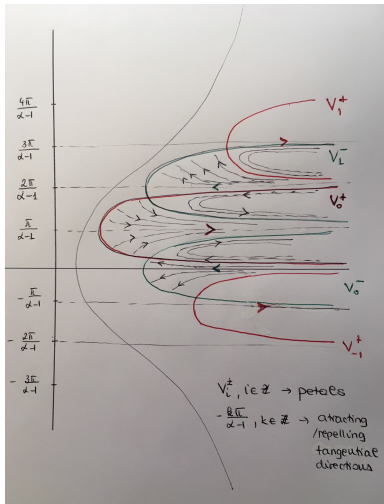 4π/α-1
V₁⁺
3π/α-1
V₁⁻
2π/α-1
V₀⁺
π/α-1
V₀⁻
-π/α-1
-2π/α-1
V₋₁⁺
-3π/α-1
Vᵢ±, i∈ℤ → petals
-kπ/α-1, k∈ℤ → atracting
/repelling
tangential
directions